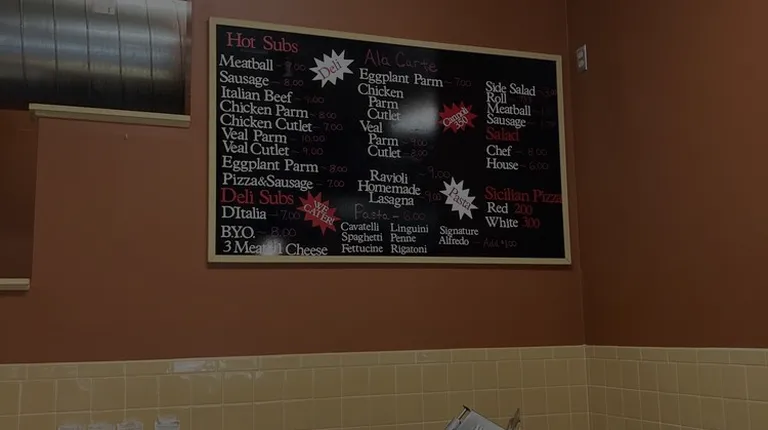 Hot Subs
Meatball
Sausage - 8.00
Italian Beef - 9.00
Chicken Parm - 8.00
Chicken Cutlet - 7.00
Veal Parm - 10.00
Veal Cutlet - 9.00
Eggplant Parm - 8.00
Pizza&Sausage - 7.00
Deli Subs
D'Italia - 7.00
B.Y.O. - 8.00
3 Meat Cheese
Deli
WE CATER!
Ala Carte
Eggplant Parm - 7.00
Chicken
Parm
Cutlet
Veal
Parm - 9.00
Cutlet - 8.00
Ravioli - 9.00
Homemade
Lasagna - 9.00
Pasta - 6.00
Cavatelli Linguini
Spaghetti Penne
Fettucine Rigatoni
Cannoli
3.50
Pasta
Signature
Alfredo - Add
Side Salad
Roll
Meatball
Sausage
Salad
Chef - 8.00
House - 6.00
Sicilian Pizza
Red 200
White 300